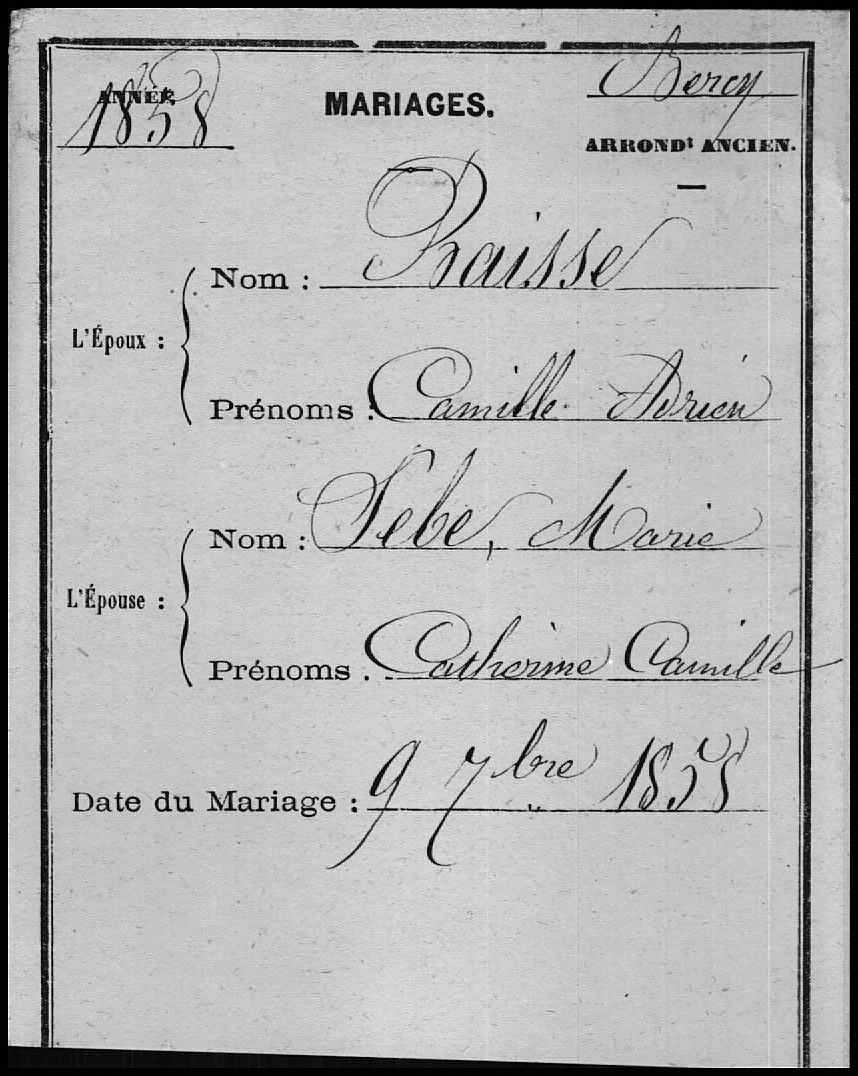 ANNÉE.
1858
MARIAGES.
Bercy
ARRONDt ANCIEN.
L'Époux :
Nom : Raisse
Prénoms : Camille Adrien
L'Épouse :
Nom : Sebe, Marie
Prénoms . Catherine Camille
Date du Mariage : 9 7bre 1858